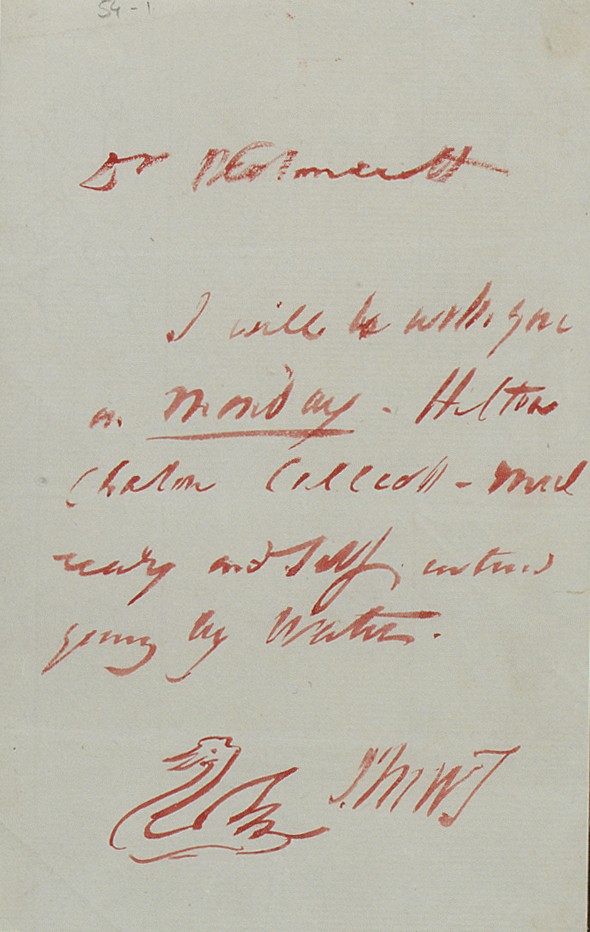 54-1
Dr Westmacott
I will be with you
on Monday - Hilton
Chalon Callcott - Mul
ready and Self, intend
going by Water.
J.M.W.T